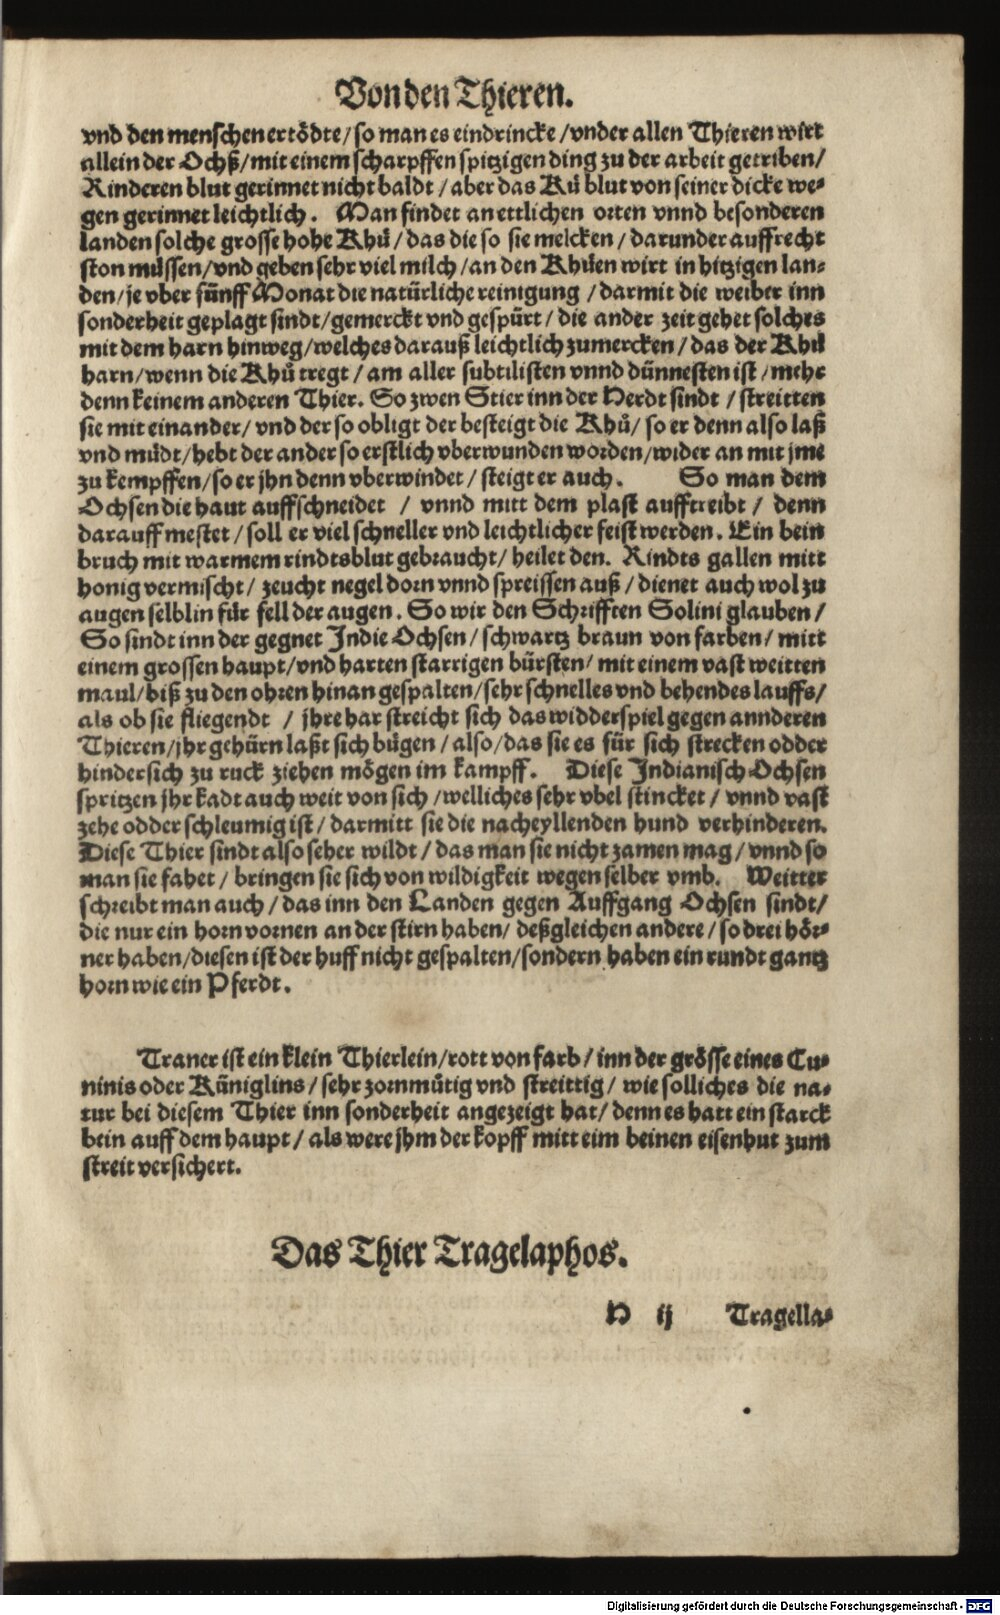 Von den Thieren.
vnd den menschen ertödte/ so man es eindrincke / vnder allen Thieren wirt
allein der Ochß/ mit einem scharpffen spitzigen ding zu der arbeit getriben/
Rinderen blut gerinnet nicht baldt / aber das Ků blut von seiner dicke we-
gen gerinnet leichtlich. Man findet an ettlichen orten vnnd besonderen
landen solche grosse hohe Khů / das die so sie melcken / darunder auffrecht
ston müssen/ vnd geben sehr viel milch / an den Khüen wirt in hitzigen lan-
den/ je vber fünff Monat die natürliche reinigung / darmit die weiber inn
sonderheit geplagt sindt/ gemerckt vnd gespürt / die ander zeit gehet solches
mit dem harn hinweg/ welches darauß leichtlich zumercken / das der Khů
harn/ wenn die Khů tregt / am aller subtilisten vnnd dünnesten ist / mehr
denn keinem anderen Thier. So zwen Stier inn der Herdt sindt / streitten
sie mit einander/ vnd der so obligt der besteigt die Khů/ so er denn also laß
vnd müdt/ hebt der ander so erstlich vberwunden worden/ wider an mit jme
zu kempffen/ so er jhn denn vberwindet / steigt er auch. So man dem
Ochsen die haut auffschneidet / vnnd mitt dem plast aufftreibt / denn
darauff mestet / soll er viel schneller vnd leichtlicher feist werden. Ein bein
bruch mit warmem rindtsblut gebraucht/ heilet den. Rindts gallen mitt
honig vermischt / zeucht negel dorn vnnd spreissen auß / dienet auch wol zu
augen selblin für fell der augen. So wir den Schrifften Solini glauben /
So sindt inn der gegnet Indie Ochsen / schwartz braun von farben / mitt
einem grossen haupt/ vnd harten starrigen bürsten/ mit einem vast weitten
maul/ biß zu den ohren hinan gespalten/ sehr schnelles vnd behendes lauffs/
als ob sie fliegendt / jhre har streicht sich das widderspiel gegen annderen
Thieren/ jhr gehürn laßt sich bügen / also/ das sie es für sich strecken odder
hindersich zu ruck ziehen mögen im kampff. Diese Indianisch Ochsen
spritzen jhr kadt auch weit von sich / welliches sehr vbel stincket / vnnd vast
zehe odder schleumig ist / darmitt sie die nacheyllenden hund verhinderen.
Diese Thier sindt also seher wildt / das man sie nicht zamen mag / vnnd so
man sie fahet / bringen sie sich von wildigkeit wegen selber vmb. Weitter
schreibt man auch / das inn den Landen gegen Auffgang Ochsen sindt/
die nur ein horn vornen an der stirn haben/ deßgleichen andere / so drei hör-
ner haben/ diesen ist der huff nicht gespalten/ sondern haben ein rundt gantz
horn wie ein Pferdt.
Traner ist ein klein Thierlein/ rott von farb / inn der grösse eines Cu-
ninis oder Küniglins / sehr zornmütig vnd streittig / wie solliches die na-
tur bei diesem Thier inn sonderheit angezeigt hat / denn es hatt ein starck
bein auff dem haupt / als were jhm der kopff mitt eim beinen eisenhut zum
streit versichert.
Das Thier Tragelaphos.
H ij Tragella-
Digitalisierung gefördert durch die Deutsche Forschungsgemeinschaft - DFG